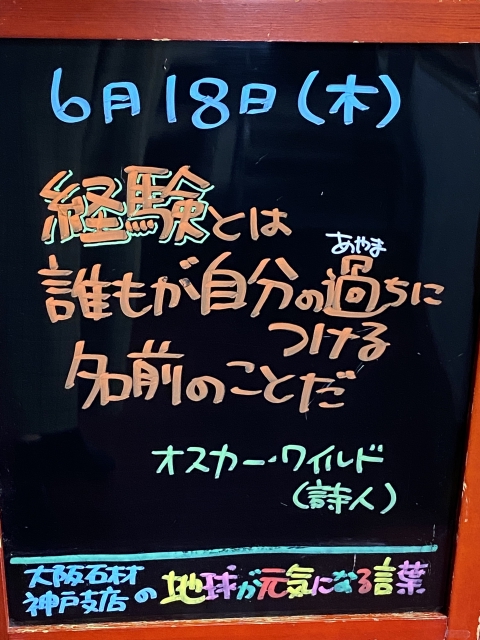 6月18日(木)
経験とは
誰もが自分の過ちに
あやま
つける
名前のことだ
オスカー・ワイルド
(詩人)
大阪石材
神戸支店の地球が元気になる言葉